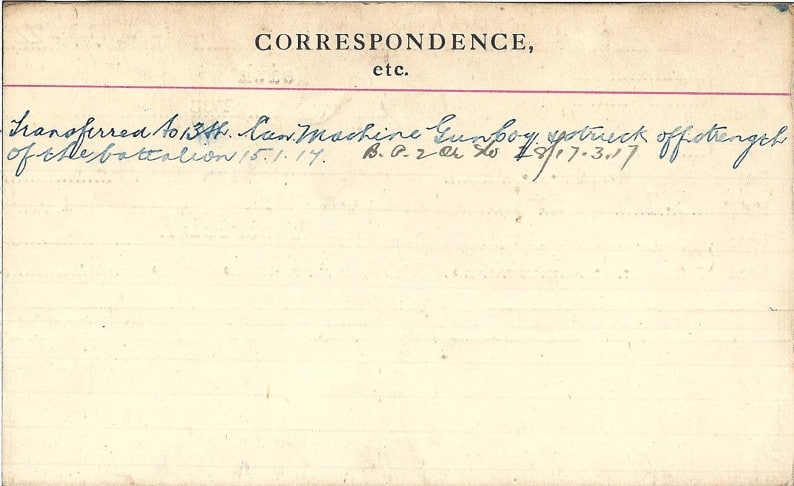 CORRESPONDENCE,
etc.
Transferred to 13th. Can. Machine Gun Coy, & struck off strength
of the battalion 15.1.17. B. P. 2 17.3.17